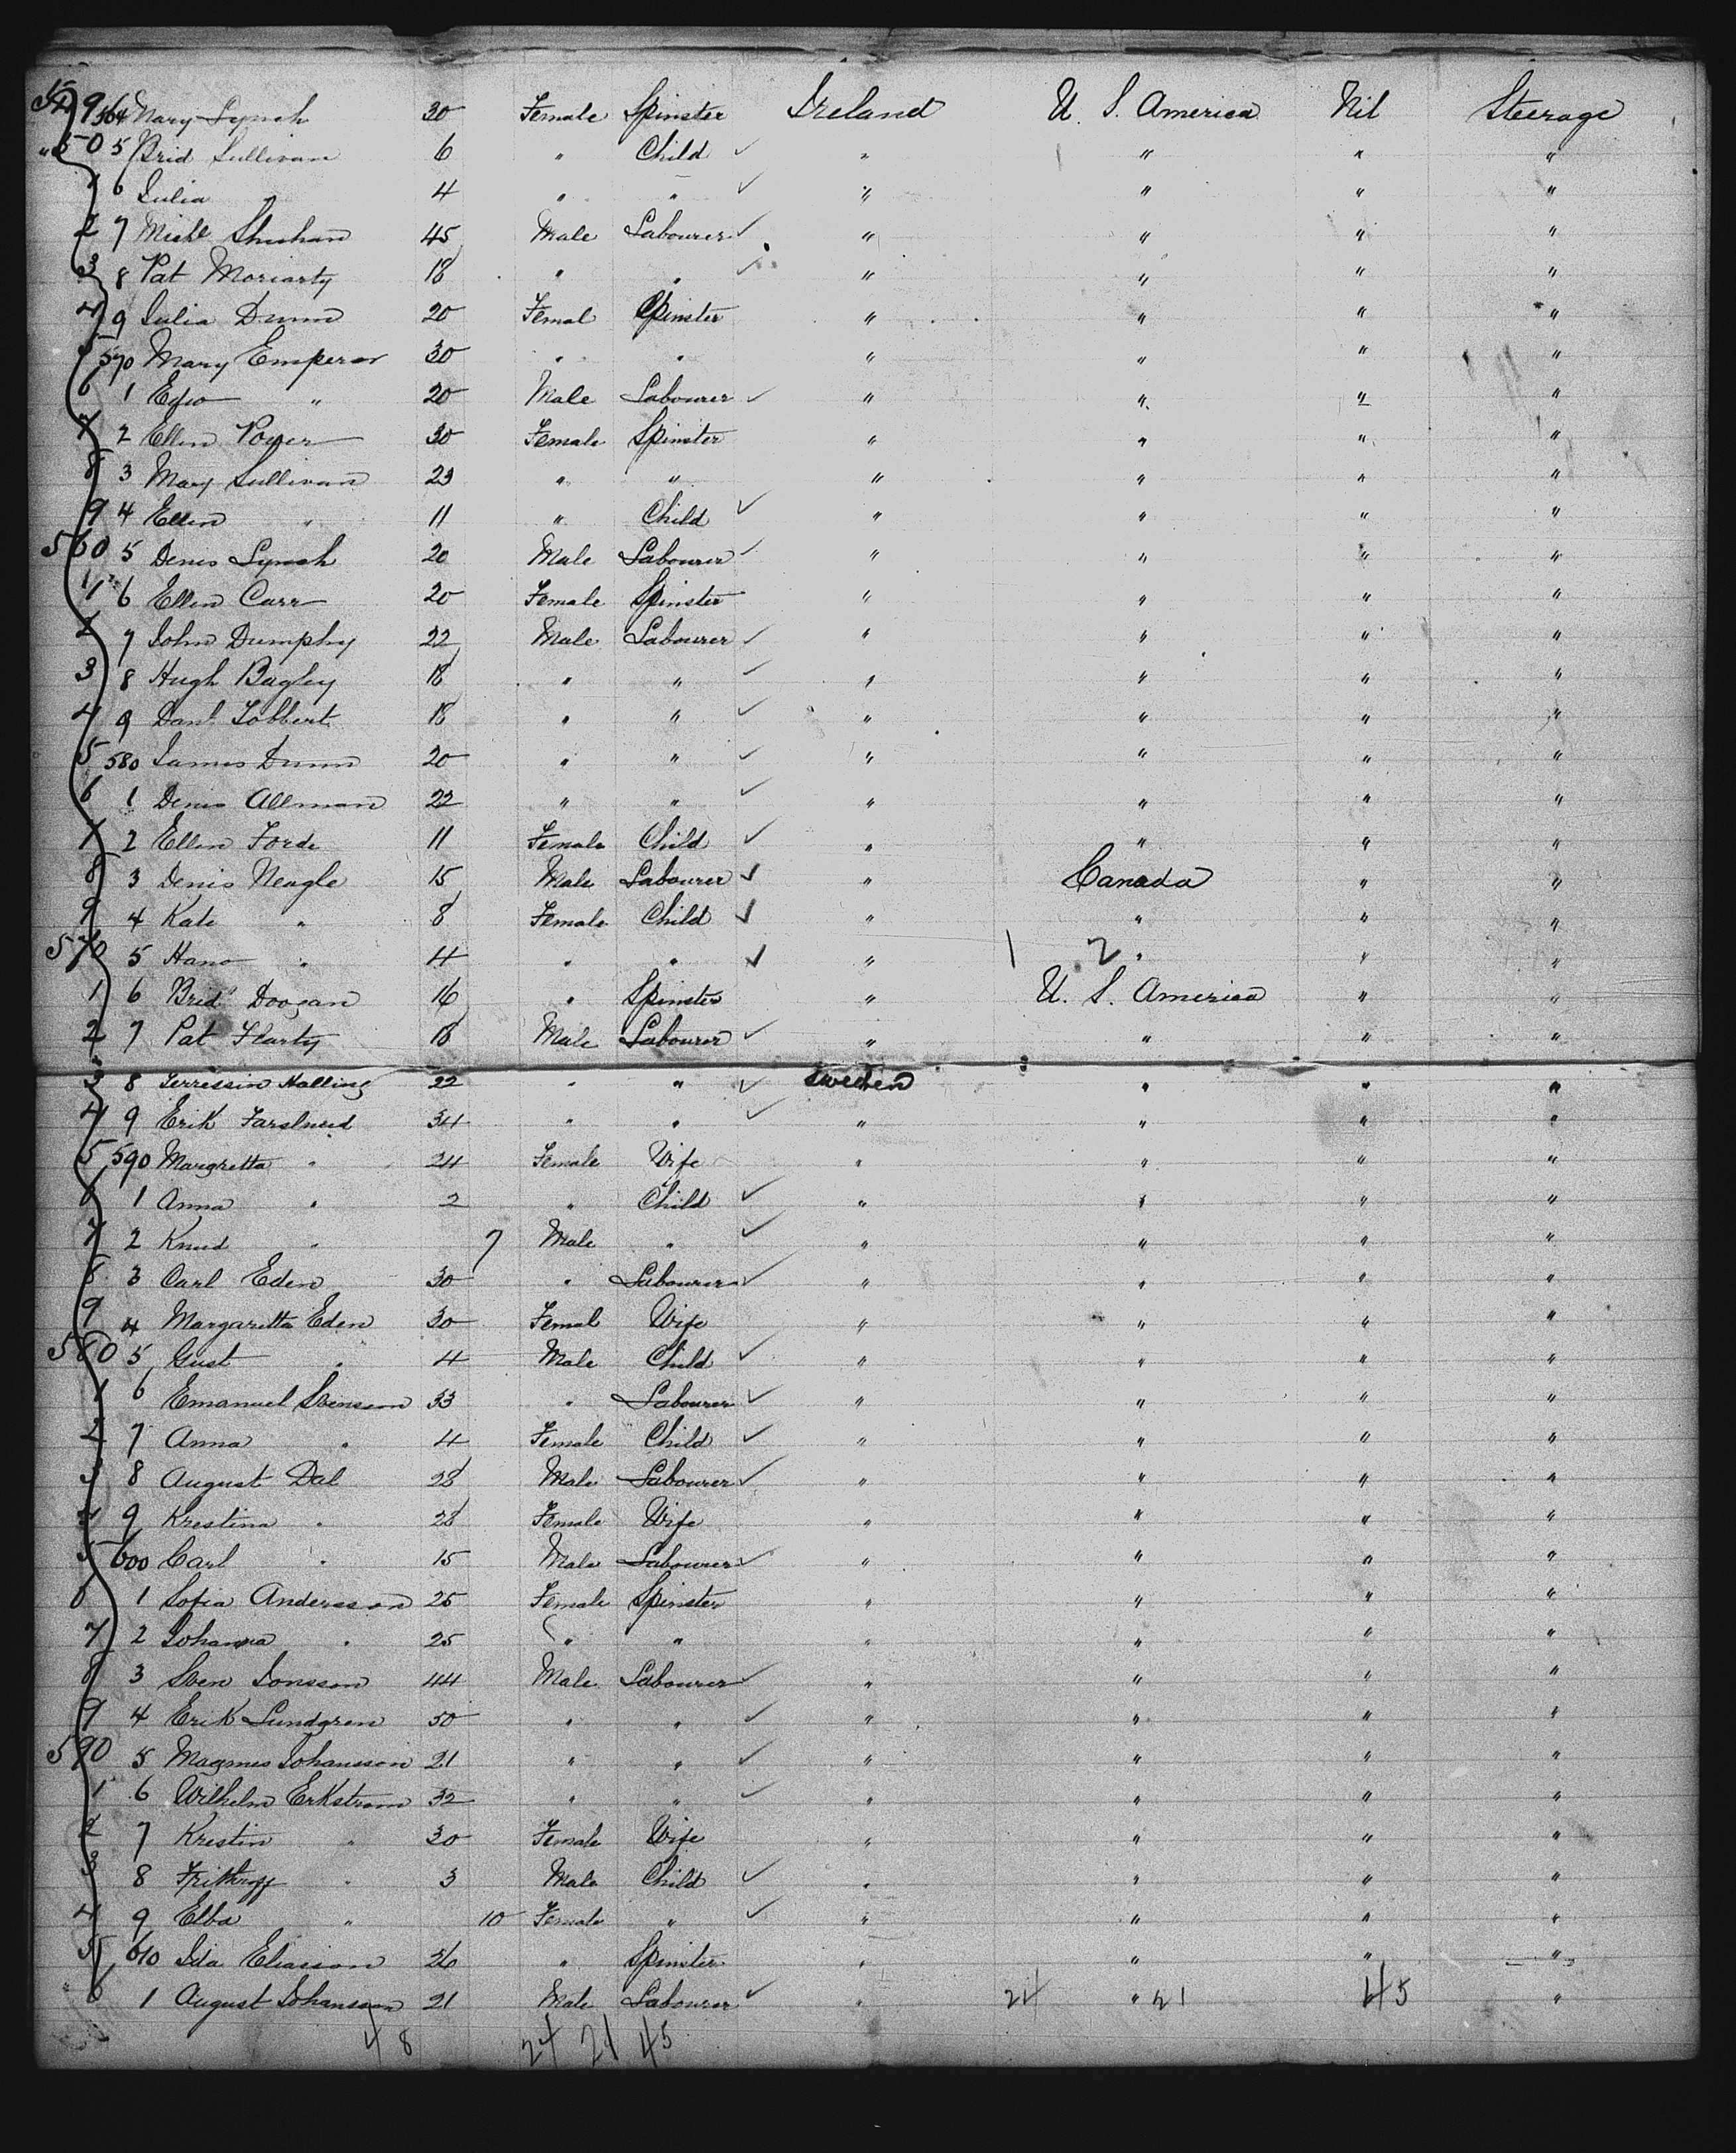 549 564 Mary Lynch 30 Female Spinster Ireland U. S. America Nil Steerage
550 5 Brid Sullivan 6 " Child ✓ " " " "
1 6 Julia " 4 " " ✓ " " " "
2 7 Michl Shuhan 45 Male Labourer ✓ " " " "
3 8 Pat Moriarty 18 " " ✓ " " " "
4 9 Julia Dunn 20 Femal Spinster " " " "
5 570 Mary Emperor 30 " " " " " "
6 1 " 20 Male Labourer ✓ " " " "
7 2 Ellen Power 30 Female Spinster " " " "
8 3 Mary Sullivan 23 " " " " " "
9 4 Ellen " 11 " Child ✓ " " " "
560 5 Denis Lynch 20 Male Labourer ✓ " " " "
1 6 Ellen Carr 20 Female Spinster " " " "
2 7 John Dumphy 22 Male Labourer ✓ " " " "
3 8 Hugh Bagley 18 " " ✓ " " " "
4 9 Danl Tobbert 18 " " ✓ " " " "
5 580 James Dunn 20 " " ✓ " " " "
6 1 Denis Allman 22 " " ✓ " " " "
7 2 Ellen Forde 11 Female Child ✓ " " " "
8 3 Denis Neagle 15 Male Labourer ✓ " Canada " "
9 4 Kate " 8 Female Child ✓ " " " "
570 5 Hano " 4 " " ✓ " 1 2 " " "
1 6 Brid Doogan 16 " Spinster " U. S. America " "
2 7 Pat Flarty 18 Male Labourer ✓ " " " "
3 8 Halling 22 " " ✓ Sweden " " "
4 9 Erik 34 " " ✓ " " " "
5 590 Margretta " 24 Female Wife " " " "
6 1 Anna " 2 " Child ✓ " " " "
7 2 Knud " 7 Male " ✓ " " " "
8 3 Carl Eden 30 " Labourer ✓ " " " "
9 4 Margaretta Eden 30 Femal Wife " " " "
580 5 Gust " 4 Male Child ✓ " " " "
1 6 Emanuel Svensson 33 " Labourer ✓ " " " "
2 7 Anna " 4 Female Child ✓ " " " "
3 8 August Dal 28 Male Labourer ✓ " " " "
4 9 Krestina " 28 Female Wife " " " "
5 600 Carl " 15 Male Labourer ✓ " " " "
6 1 Sofia Andersson 25 Female Spinster " " " "
7 2 Johanna " 25 " " " " " "
8 3 Sven Jonsson 44 Male Labourer ✓ " " " "
9 4 Erik Lundgren 50 " " ✓ " " " "
590 5 Magnus Johansson 21 " " ✓ " " " "
1 6 Wilhelm Erkstrom 32 " " ✓ " " " "
2 7 Krestin " 30 Female Wife " " " "
3 8 " 3 Male Child ✓ " " " "
4 9 Elba " 10 Female " ✓ " " " "
5 610 Ida Eliasson 26 " Spinster " " " "
6 1 August Johansson 21 Male Labourer ✓ " 24 " 21 45 "
48 24 21 45